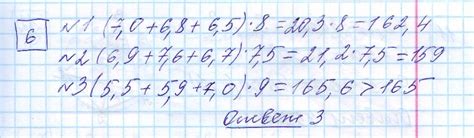 6
№1 (7,0+6,8+6,5)·8=20,3·8=162,4
№2 (6,9+7,6+6,7)·7,5=21,2·7,5=159
№3 (5,5+5,9+7,0)·9=165,6>165
Ответ 3